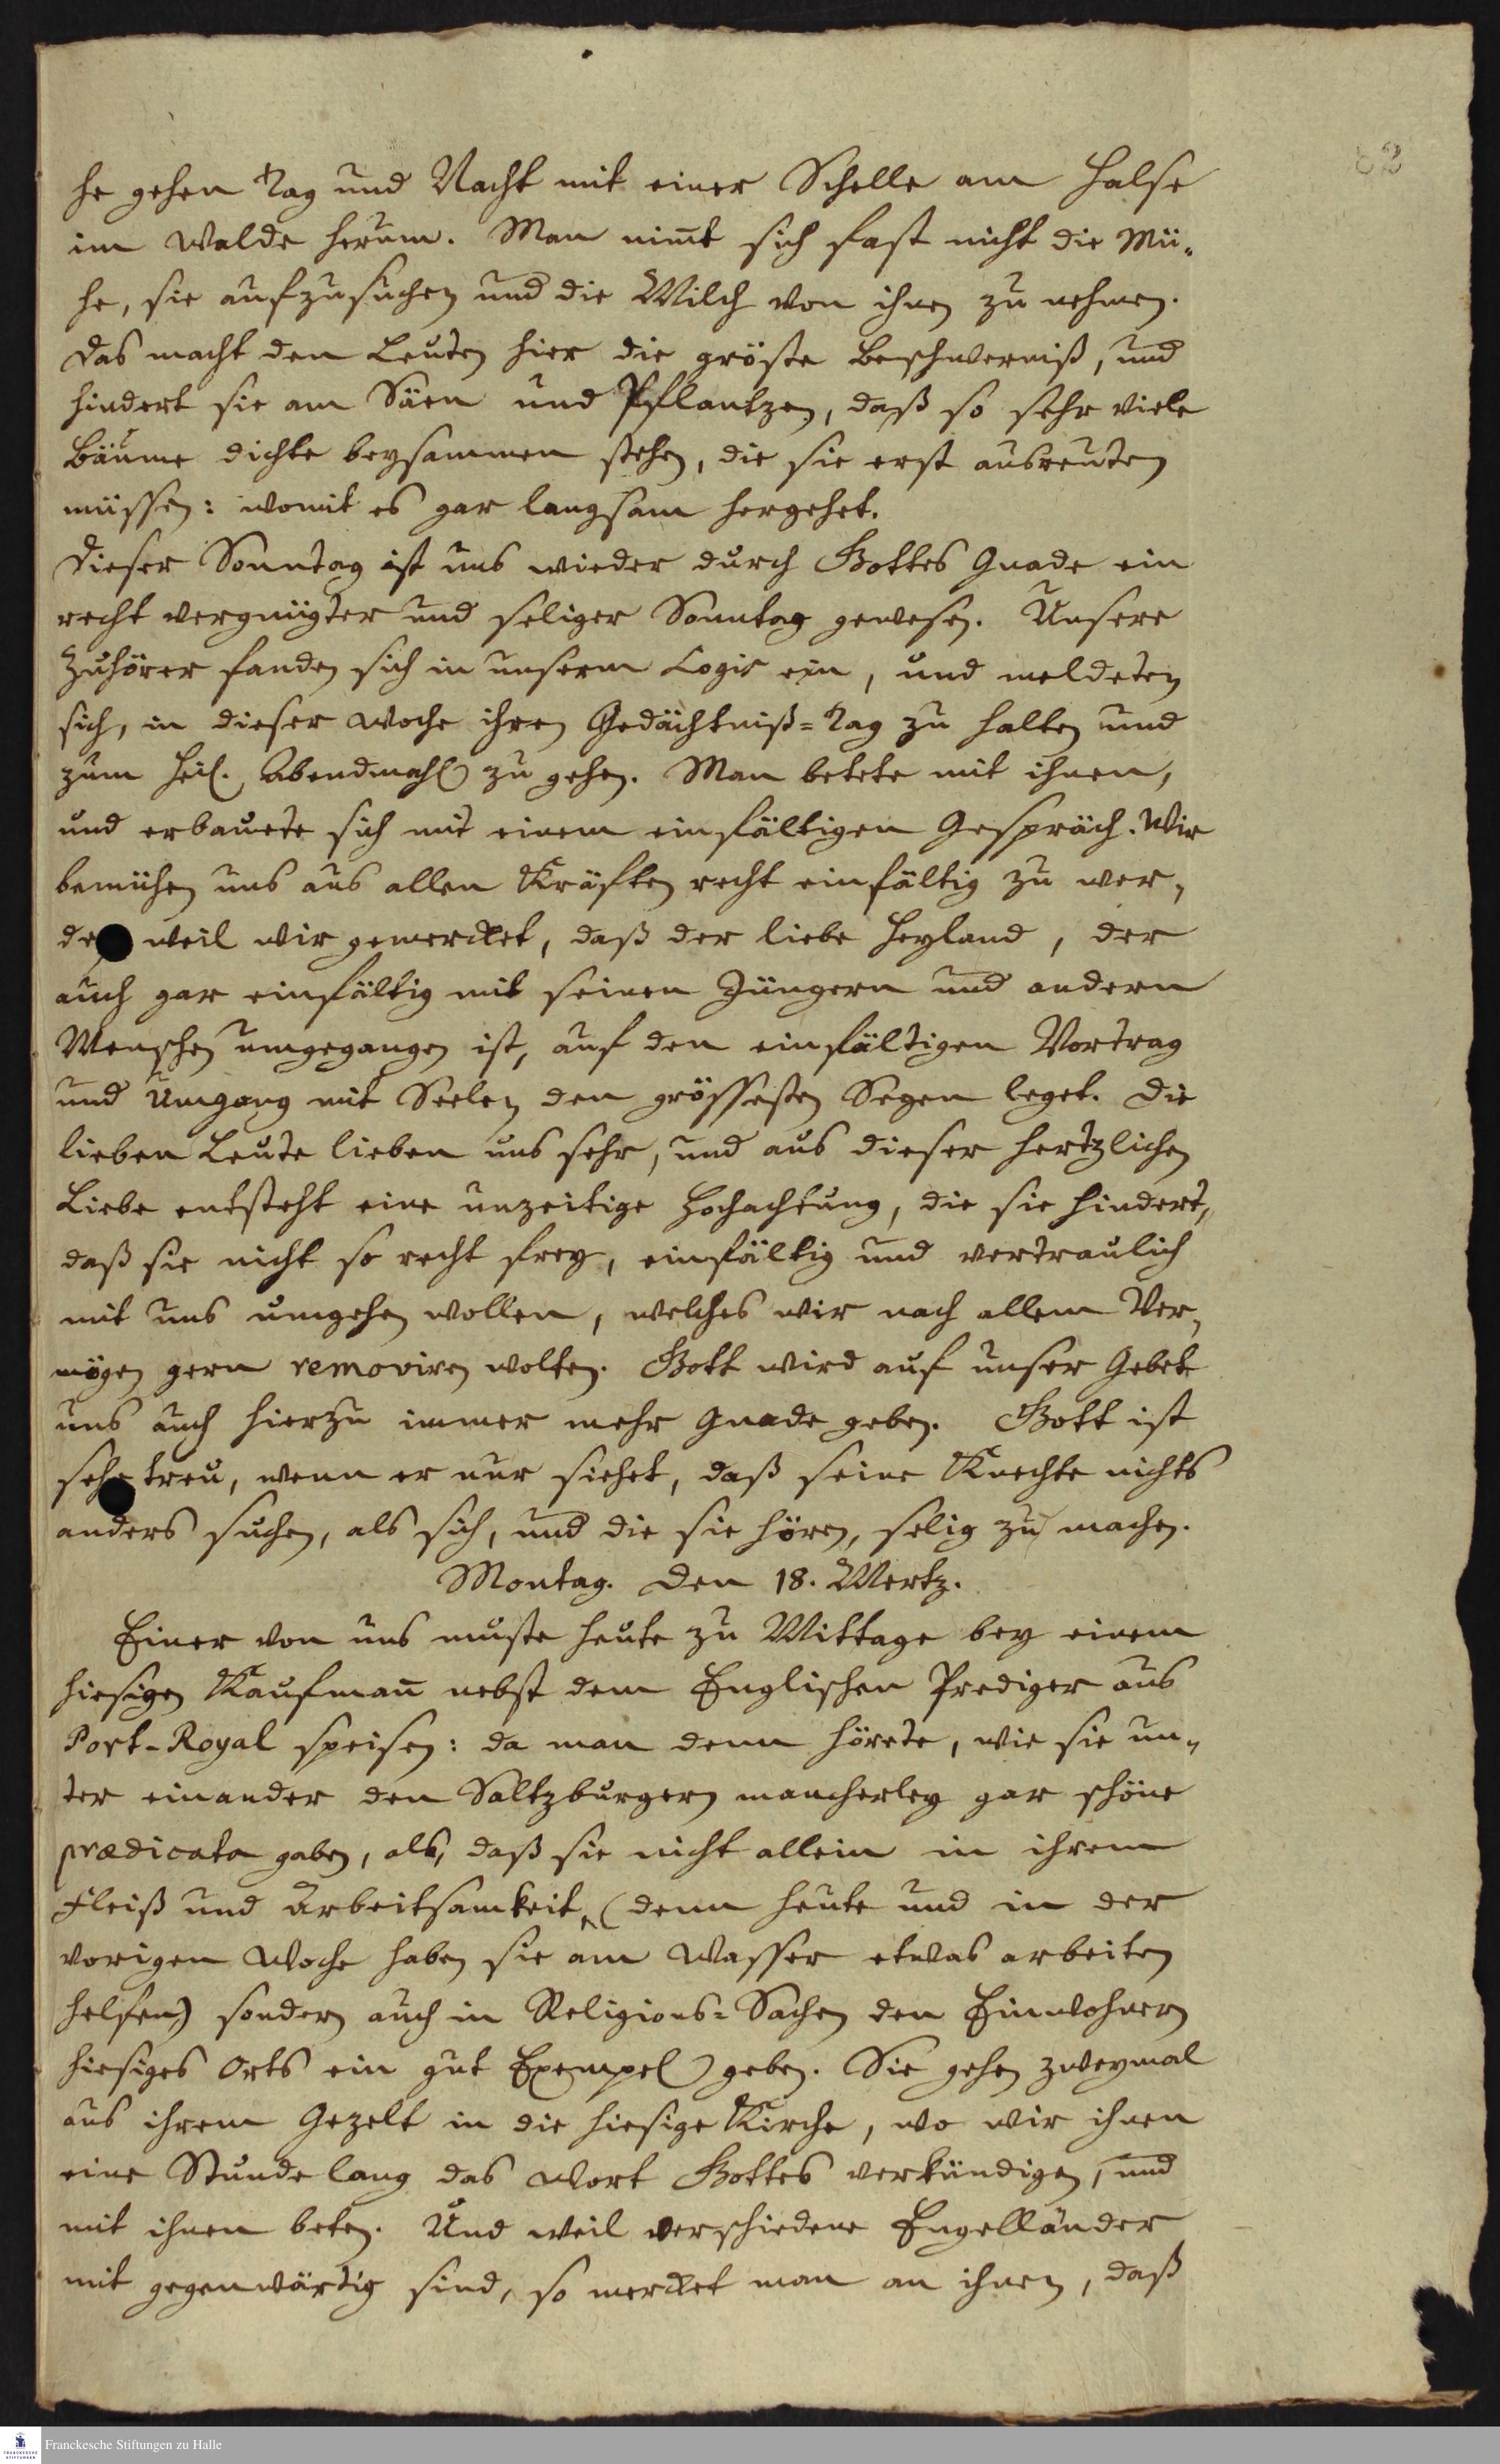 he gehen Tag und Nacht mit einer Schelle am Halse
im Walde herum. Man nim̅t sich fast nicht die Mü-
he, sie aufzusuchen und die Milch von ihnen zu nehmen.
Das macht den Leuten hier die gröste Beschwerniß, und
hindert sie am Säen und Pflantzen, daß so sehr viele
Bäume dichte beysammen stehen, die sie erst ausreuten
müssen: womit es gar langsam hergehet.
Dieser Sonntag ist uns wieder durch Gottes Gnade ein
recht vergnügter und seliger Sonntag gewesen. Unsere
Zuhörer fanden sich in unserm Logis ein, und meldeten
sich, in dieser Woche ihren Gedächtniß-Tag zu halten und
zum heil. Abendmahl zu gehen. Man betete mit ihnen,
und erbauete sich mit einem einfältigen Gespräch. Wir
bemühen uns aus allen Kräften recht einfältig zu wer-
den weil wir gemercket, daß der liebe Heyland, der
auch gar einfältig mit seinen Jüngern und andern
Menschen umgegangen ist, auf den einfältigen Vortrag
und Umgang mit Seelen den grössesten Segen leget. Die
lieben Leute lieben uns sehr, und aus dieser hertzlichen
Liebe entsteht eine unzeitige Hochachtung, die sie hindert,
daß sie nicht so recht frey, einfältig und vertraulich
mit uns umgehen wollen, welches wir nach allem Ver-
mögen gern removiren wolten. Gott wird auf unser Gebet
uns auch hierzu immer mehr Gnade geben. Gott ist
sehr treu, wenn er nur siehet, daß seine Knechte nichts
anders suchen, als sich, und die sie hören, selig zu machen.
Montag. Den 18. Mertz.
Einer von uns muste heute zu Mittage bey einem
hiesigen Kaufman̅ nebst dem Englischen Prediger aus
Port-Royal speisen: da man denn hörete, wie sie un-
ter einander den Saltzburgern mancherley gar schöne
prædicata gaben, als, daß sie nicht allein in ihrem
Fleiß und Arbeitsamkeit, (denn heute und in der
vorigen Woche haben sie am Wasser etwas arbeiten
helfen) sondern auch in Religions-Sachen den Einwohnern
hiesiges Orts ein gut Exempel geben. Sie gehen zweymal
aus ihrem Gezelt in die hiesige Kirche, wo wir ihnen
eine Stunde lang das Wort Gottes verkündigen, und
mit ihnen beten. Und weil verschiedene Engelländer
mit gegenwärtig sind, so mercket man an ihnen, daß
Franckesche Stiftungen zu Halle